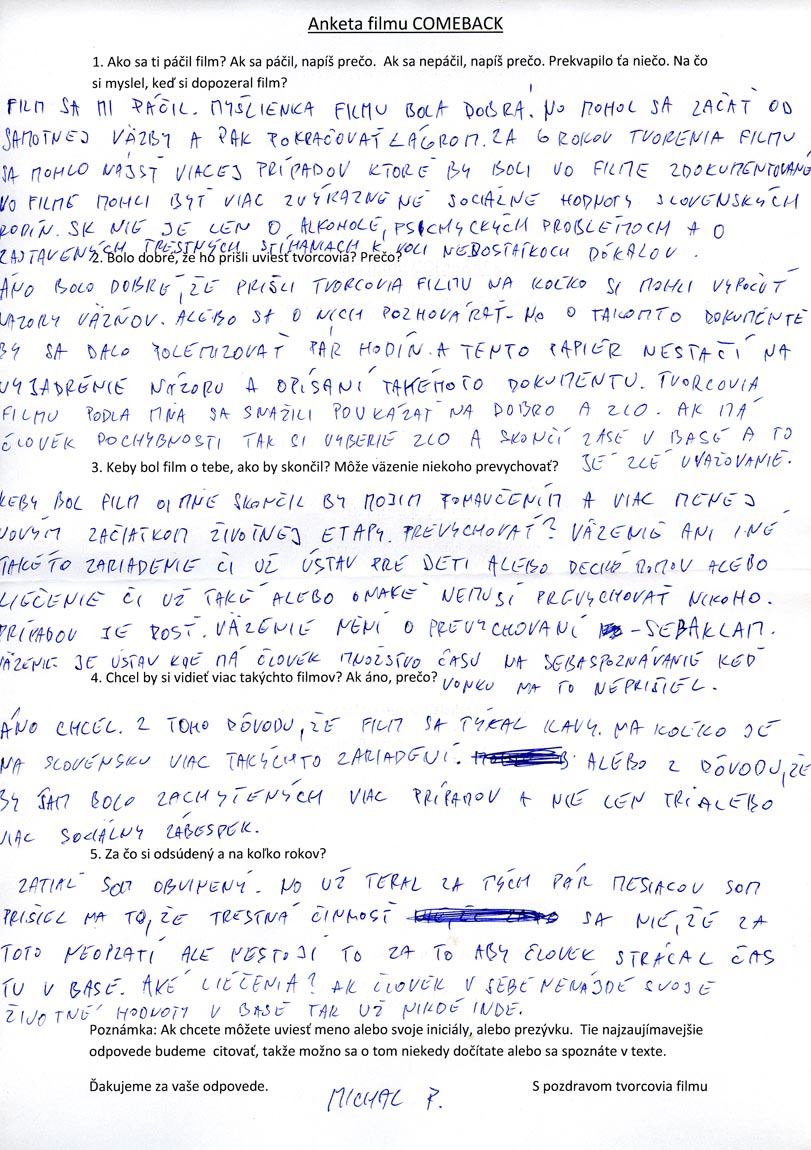 Anketa filmu COMEBACK
1. Ako sa ti páčil film? Ak sa páčil, napíš prečo. Ak sa nepáčil, napíš prečo. Prekvapilo ťa niečo. Na čo
si myslel, keď si dopozeral film?
FILM SA MI PÁČIL. MYŠLIENKA FILMU BOLA DOBRÁ. NO MOHOL SA ZAČAŤ OD
SAMOTNEJ VÄZBY A PAK POKRAČOVAŤ LÁGROM. ZA 6 ROKOV TVORENIA FILMU
SA MOHLO NÁJSŤ VIACEJ PRÍPADOV KTORÉ BY BOLI VO FILME ZDOKUMENTOVANÉ
VO FILME MOHLI BYŤ VIAC ZVÝRAZNENÉ SOCIÁLNE HODNOTY SLOVENSKÝCH
RODÍN. SK NIE JE LEN O ALKOHOLE, PSICHYCKÝCH PROBLÉMOCH A O
ZASTAVENÝCH TRESTNÝCH STÍHANIACH K VOLI NEDOSTATKOCH DÔKAZOV.
2. Bolo dobré, že ho prišli uviesť tvorcovia? Prečo?
ÁNO BOLO DOBRÉ, ŽE PRIŠLI TVORCOVIA FILMU NA KOĽKO SI MOHLI VYPOČUŤ
NÁZORY VÄZŇOV. ALEBO SA O NICH POZHOVÁRAŤ. NO O TAKOMTO DOKUMENTE
BY SA DALO POLEMIZOVAŤ PÁR HODÍN. A TENTO PAPIER NESTAČÍ NA
VYJADRENIE NÁZORU A OPÍSANÍ TAKÉHOTO DOKUMENTU. TVORCOVIA
FILMU PODLA MŇA SA SNAŽILI POUKÁZAŤ NA DOBRO A ZLO. AK MÁ
ČLOVEK POCHYBNOSTI TAK SI VYBERIE ZLO A SKONČÍ ZASE V BASE A TO
JE ZLÉ UVAŽOVANIE.
3. Keby bol film o tebe, ako by skončil? Môže väzenie niekoho prevychovať?
KEBY BOL FILM O MNE SKONČIL BY MOJIM PONAUČENÍM A VIAC MENEJ
NOVÝM ZAČIATKOM ŽIVOTNEJ ETAPY. PREVYCHOVAŤ? VÄZENIE ANI INÉ
TAKÉTO ZARIADENIE ČI UŽ ÚSTAV PRE DETI ALEBO DECKÉ DOMOV ALEBO
LIEČENIE ČI UŽ TAKÉ ALEBO ONAKÉ NEMUSÍ PREVYCHOVAŤ NIKOHO.
PRÍPADOV JE DOSŤ. VÄZENIE NENÍ O PREVYCHOVANÍ - SEBAKLAM.
VÄZENIE JE ÚSTAV KDE MÁ ČLOVEK MNOŽSTVO ČASU NA SEBASPOZNÁVANIE KEĎ
VONKU NA TO NEPRIŠIEL.
4. Chcel by si vidieť viac takýchto filmov? Ak áno, prečo?
ÁNO CHCEL. Z TOHO DÔVODU, ŽE FILM SA TÝKAL ILAVY. NA KOĽKO JE
NA SLOVENSKU VIAC TAKÝCHTO ZARIADENÍ. ALEBO Z DÔVODU, ŽE
BY TAM BOLO ZACHYTENÝCH VIAC PRÍPADOV A NIE LEN TRI ALEBO
VIAC SOCIÁLNY ZÁBESPEK.
5. Za čo si odsúdený a na koľko rokov?
ZATIAĽ SOM OBVINENÝ. NO UŽ TERAZ ZA TÝCH PÁR MESIACOV SOM
PRIŠIEL NA TO, ŽE TRESTNÁ ČINNOSŤ SA NIE, ŽE ZA
TOTO NEOPLATÍ ALE NESTOJÍ TO ZA TO ABY ČLOVEK STRÁCAL ČAS
TU V BASE. AKÉ LIEČENIA? AK ČLOVEK V SEBE NENÁJDE SVOJE
ŽIVOTNÉ HODNOTY V BASE TAK UŽ NIKDE INDE.
Poznámka: Ak chcete môžete uviesť meno alebo svoje iniciály, alebo prezývku. Tie najzaujímavejšie
odpovede budeme citovať, takže možno sa o tom niekedy dočítate alebo sa spoznáte v texte.
Ďakujeme za vaše odpovede. S pozdravom tvorcovia filmu
MICHAL P.